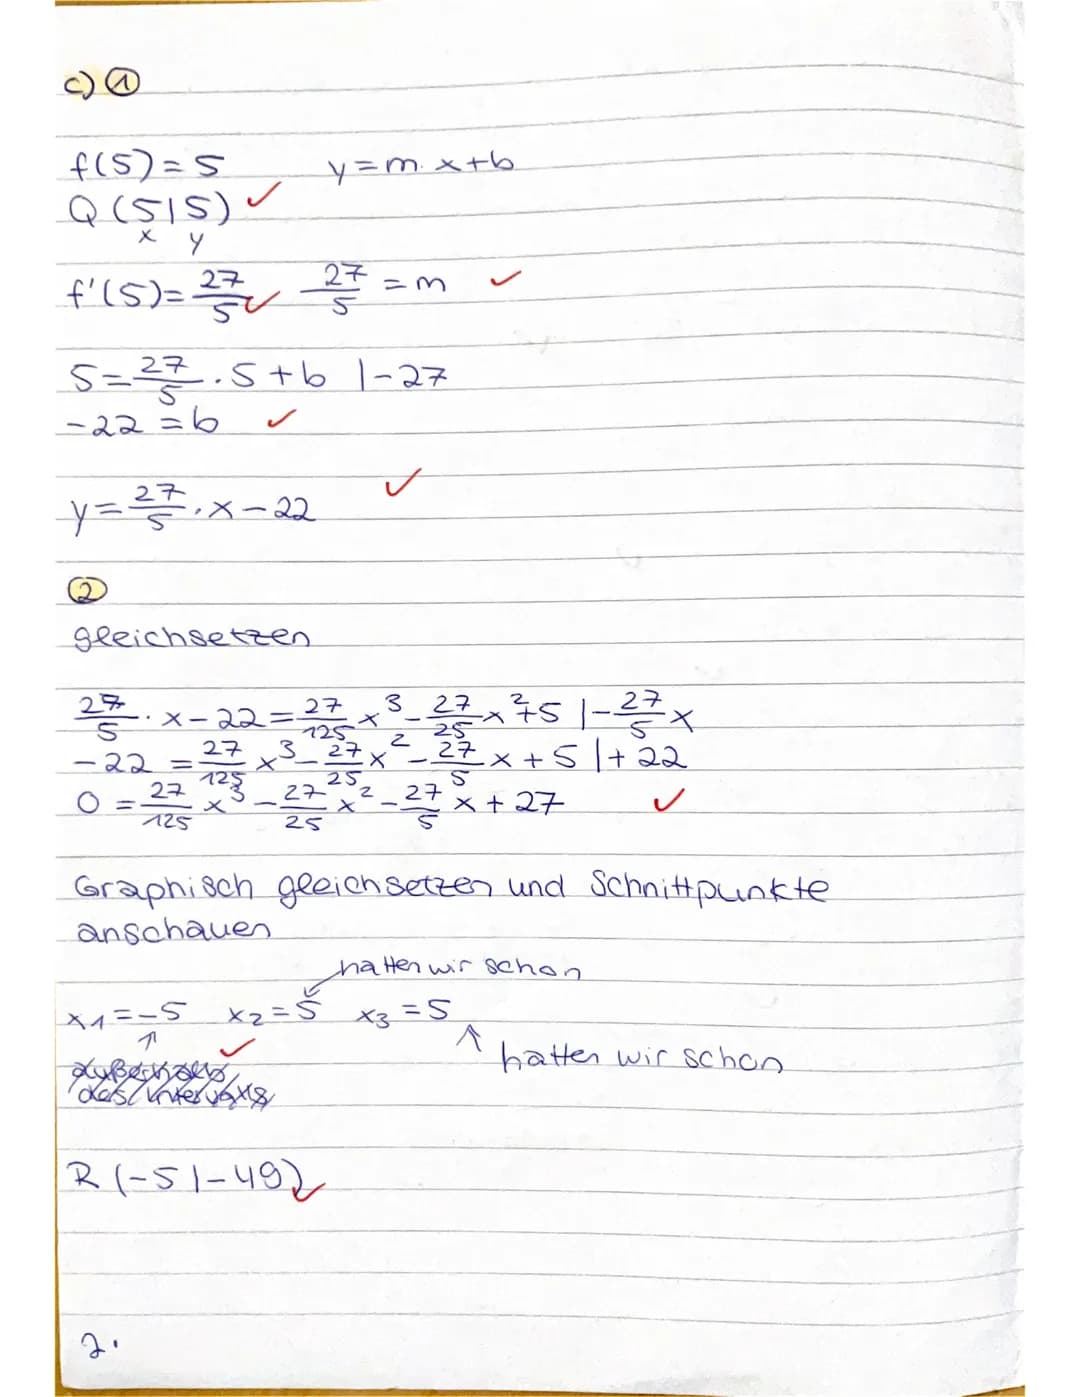 c) ①
f(5) = 5 y = m · x + b
Q (5|5) ✓
x y
f'(5) = 27/5 ✓ 27/5 = m ✓
5 = 27/5 · 5 + b |-27
-22 = b ✓
y = 27/5 · x - 22 ✓
②
gleichsetzen
27/5 · x - 22 = 27/125 x³ - 27/25 x² + 5 |- 27/5 x
-22 = 27/125 x³ - 27/25 x² - 27/5 x + 5 |+ 22
0 = 27/125 x³ - 27/25 x² - 27/5 x + 27 ✓
Graphisch gleichsetzen und Schnittpunkte
anschauen
hatten wir schon
x1 = -5 x2 = 5 x3 = 5
↑ ✓ ↑ hatten wir schon
außerhalb
des Intervalls
R (-5|-49) ✓
2.